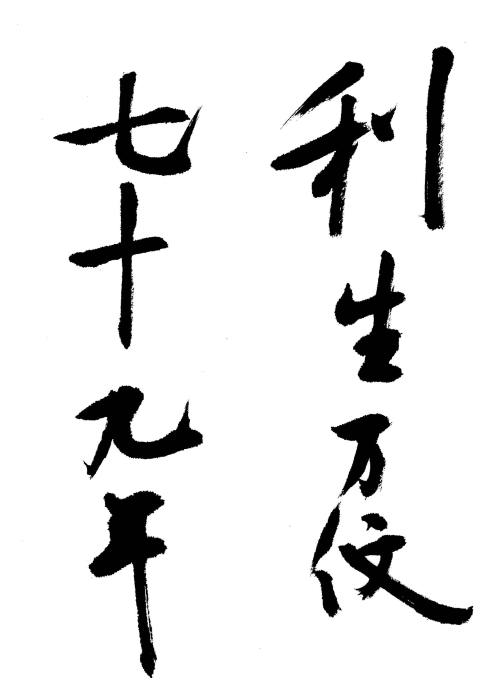 利生万伩
七十九年